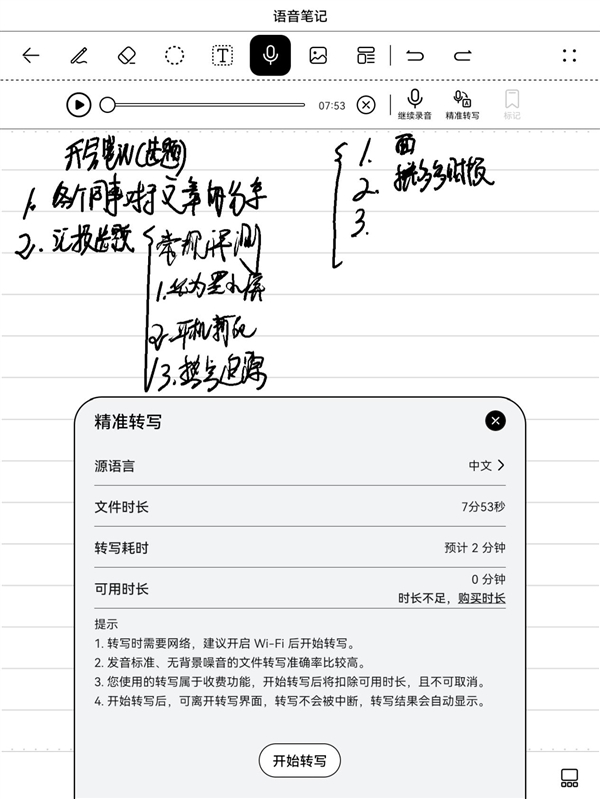 语音笔记
07:53
继续录音 精准转写 标记
1. 各个同事对于文章的分享
2. 汇报选题
常规评测
2. 平板
3. 热点追源
1. 面
2. 拼多多财报
3.
精准转写
源语言 中文
文件时长 7分53秒
转写耗时 预计 2 分钟
可用时长 0 分钟
时长不足，购买时长
提示
1. 转写时需要网络，建议开启 Wi-Fi 后开始转写。
2. 发音标准、无背景噪音的文件转写准确率比较高。
3. 您使用的转写属于收费功能，开始转写后将扣除可用时长，且不可取消。
4. 开始转写后，可离开转写界面，转写不会被中断，转写结果会自动显示。
开始转写